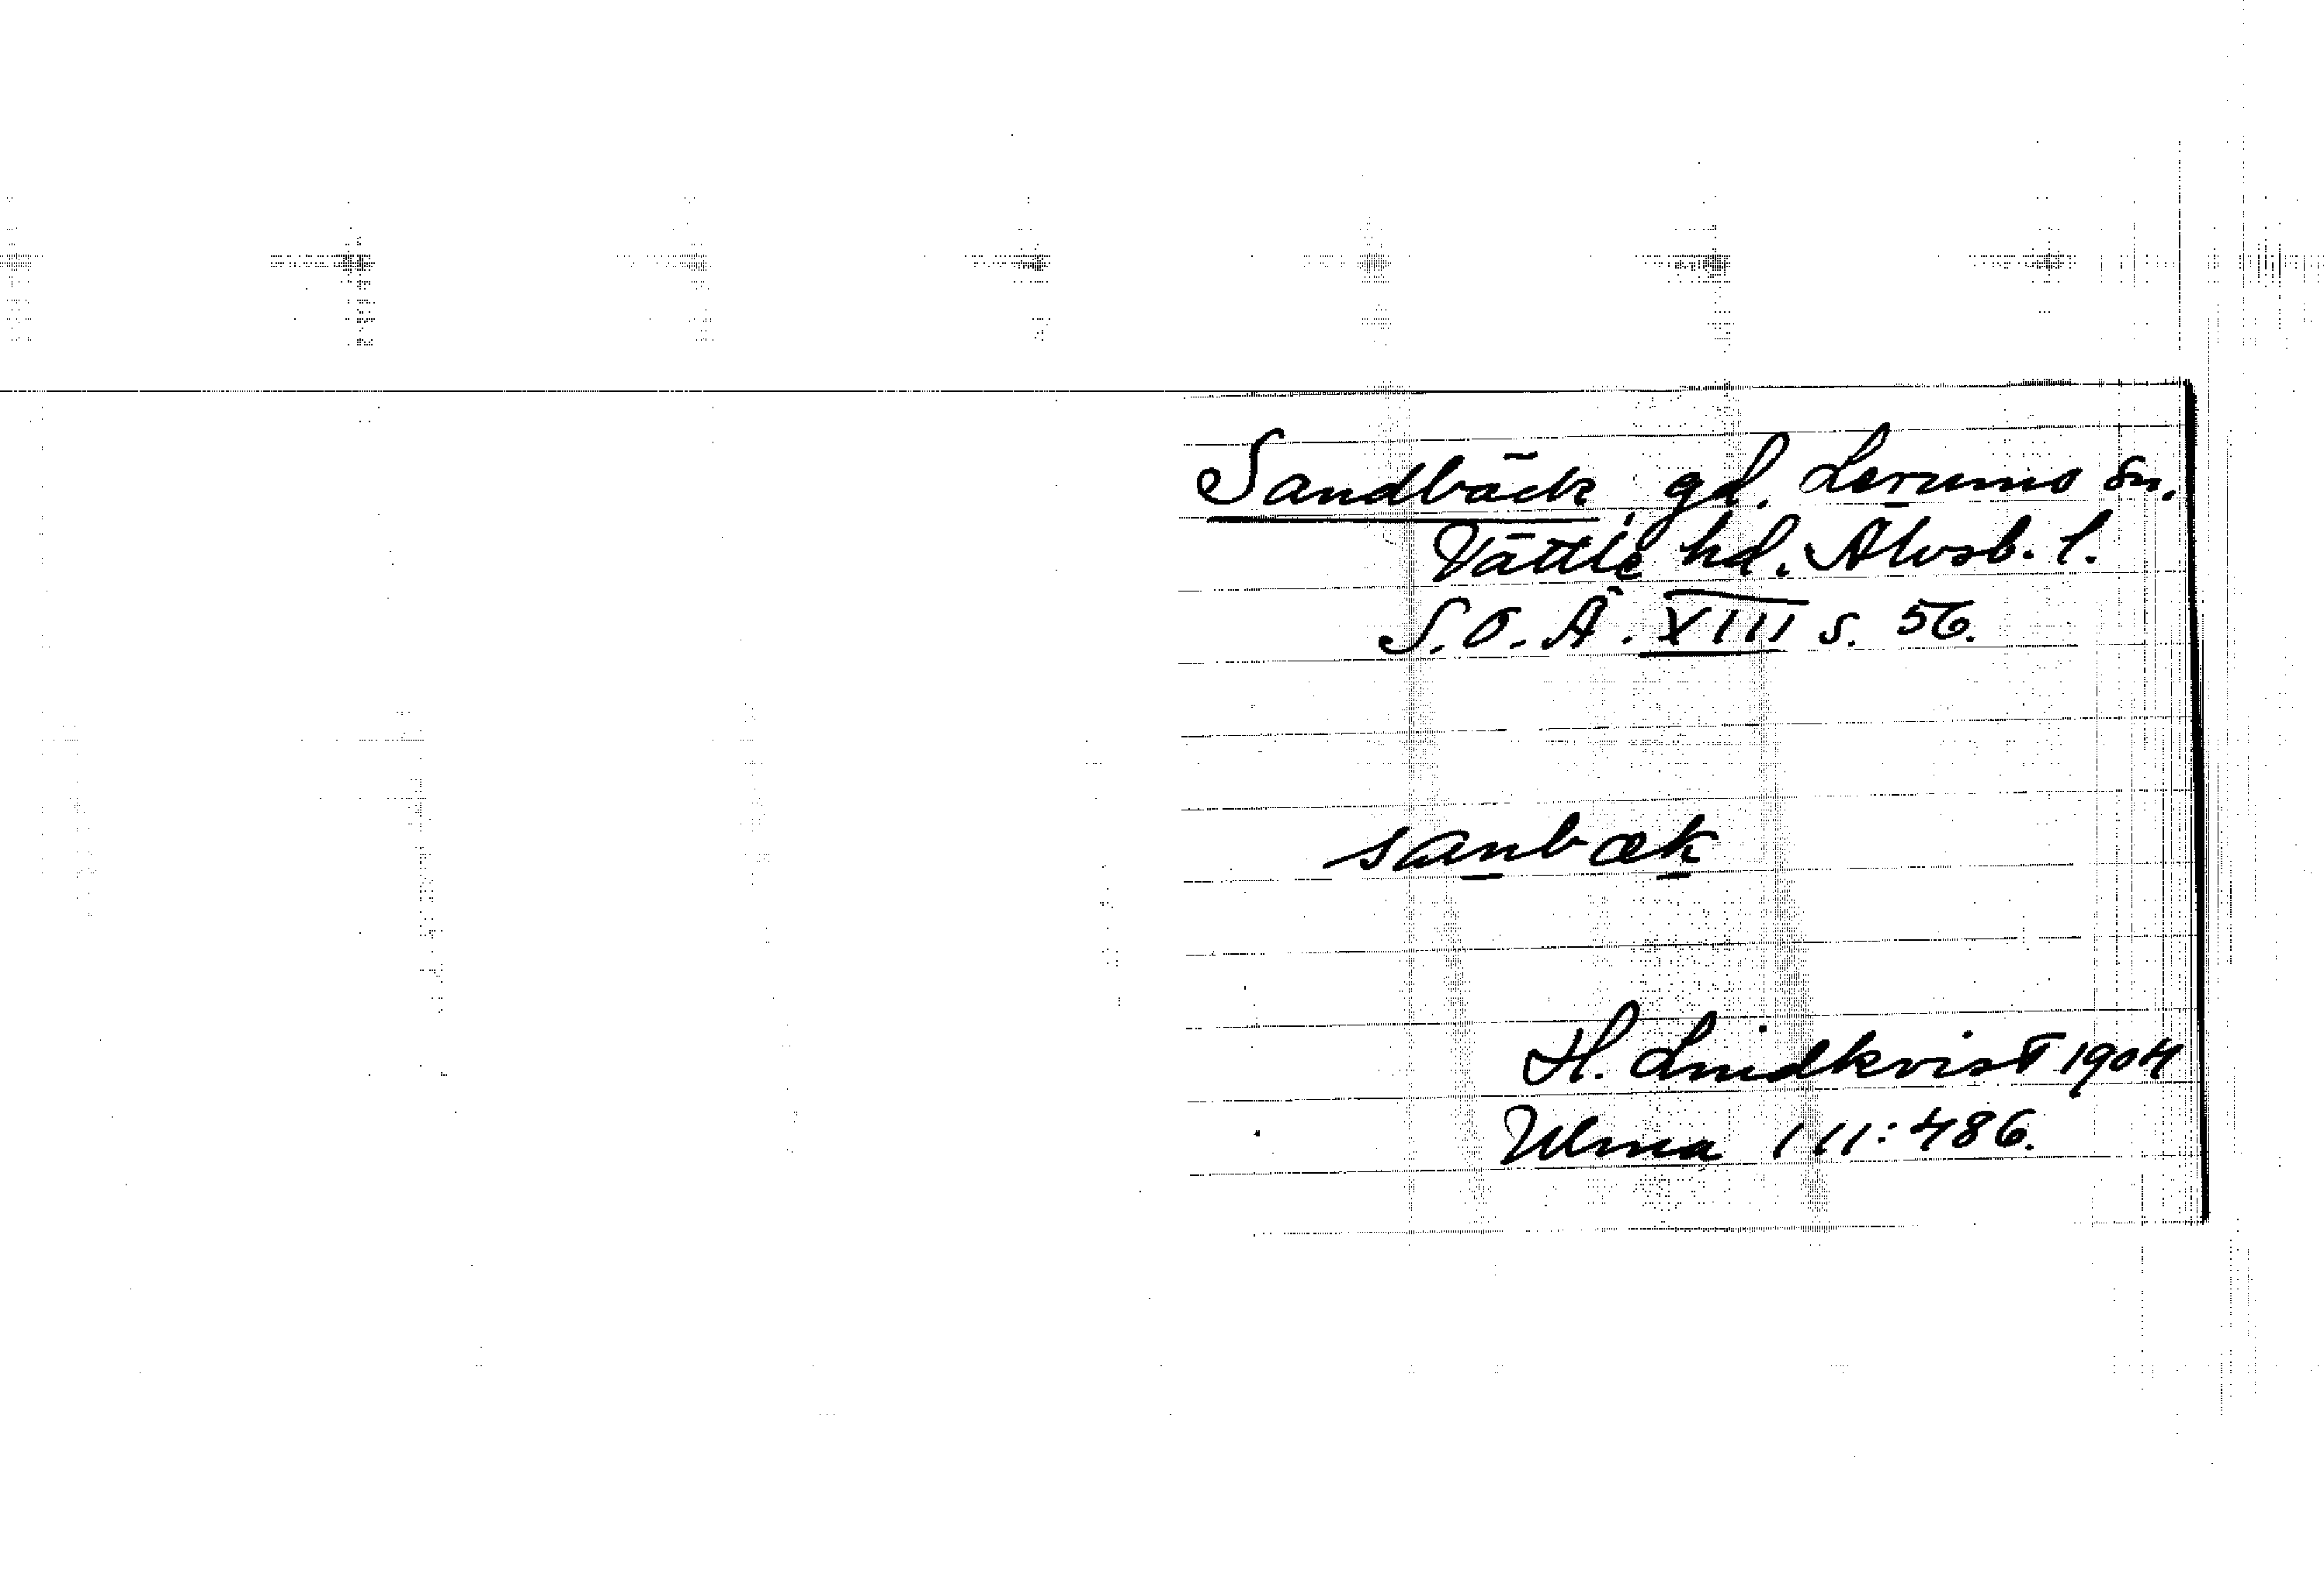 Sandbäck gd. Lerums sn.
Vättle hd. Älvsb. l.
S.O.Ä. XIII s. 56.
sanbæk
H. Lindkvist 1904
Ulma 111:486.